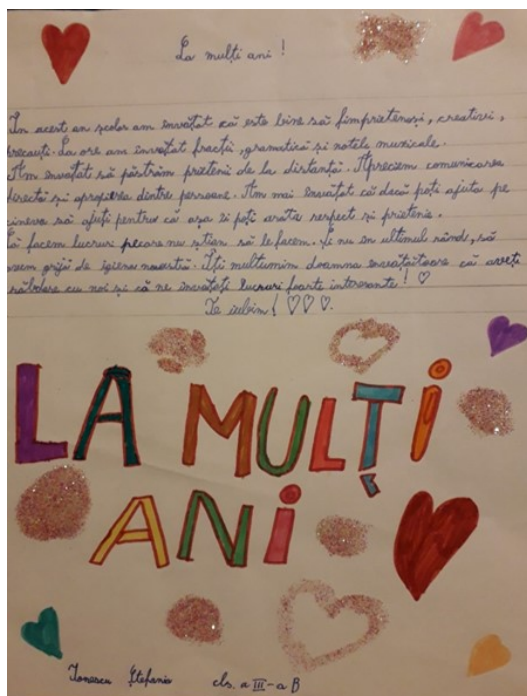 La mulți ani !
In acest an școlar am învățat că este bine să fim prietenoși, creativi,
precauți. La ore am învățat fracții, gramatică și notele muzicale.
Am învățat să păstrăm prietenii de la distanță. Apreciem comunicarea
directă și apropierea dintre persoane. Am mai învățat că dacă poți ajuta pe
cineva să ajuți pentru că așa îi poți arăta respect și prietenie.
Să facem lucruri pe care nu știam să le facem. Și nu în ultimul rând, să
avem grijă de igiena noastră. Iți mulțumim doamna învățăitoare că aveți
răbdare cu noi și că ne învățați lucruri foarte intresante !
Te iubim !
LA MULȚI
ANI
Ionescu Ștefania cls. a III-a B